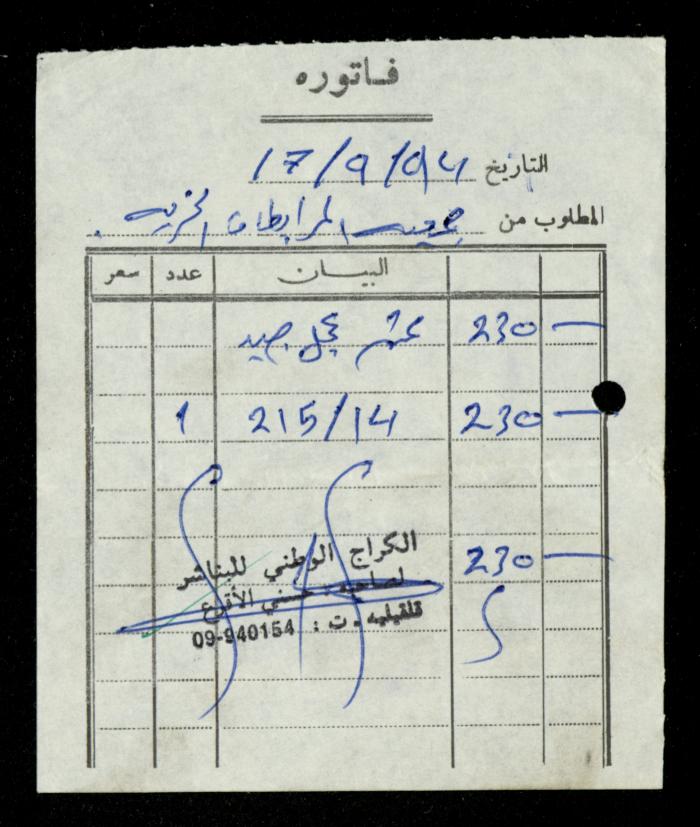 فاتوره
التاريخ 17/9/94
المطلوب من جمعية المرابطات الخيرية
البيان عدد سعر
230
1 215/14 230
230
الكراج الوطني للبناشر
لصاحبه : حسني الأقرع
قلقيليه - ت : 09-940154